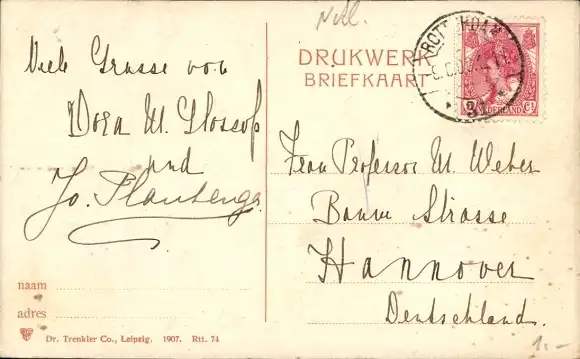 Ndl.
DRUKWERK
BRIEFKAART
ROTTERDAM
NEDERLAND
Viele Grüsse von
Dora M. Glossop
und
Jo. Plantenga.
Frau Professor M. Weber
Baum Strasse
Hannover
Deutschland.
naam
adres
Dr. Trenkler Co., Leipzig. 1907. Rtt. 74
1.-